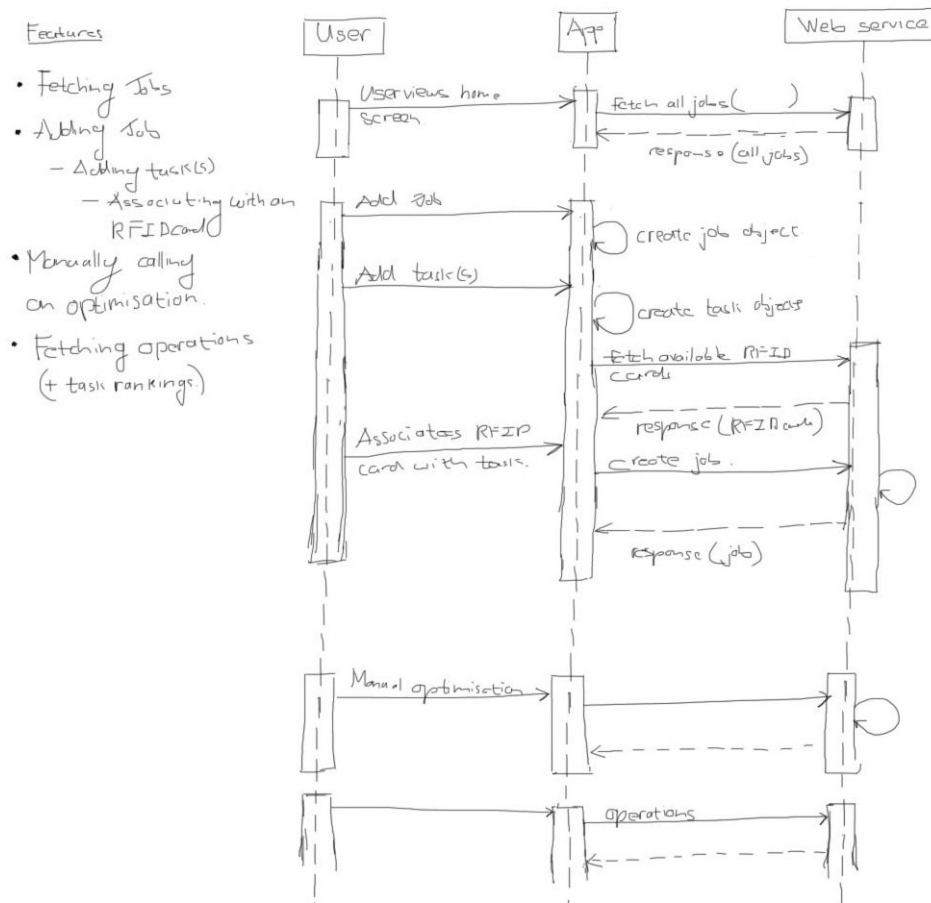 Features
• Fetching Jobs
• Adding Job
– Adding task(s)
– Associating with an
RFID card
• Manually calling
an optimisation.
• Fetching operations
(+ task rankings.)
User
App
Web service
User views home
screen
Fetch all jobs( )
response (all jobs)
Add Job
create job object
Add task(s)
create task objects
Fetch available RFID
cards
response (RFID cards)
Associates RFID
card with task.
Create job.
response (job)
Manual optimisation
operations